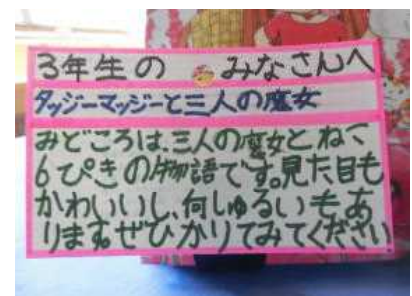 3年生の みなさんへ
タッジーマッジーと三人の魔女
みどころは、三人の魔女とねこ
6ぴきの物語です。見た目も
かわいいし、何しゅるいもあ
ります。ぜひかりてみてください